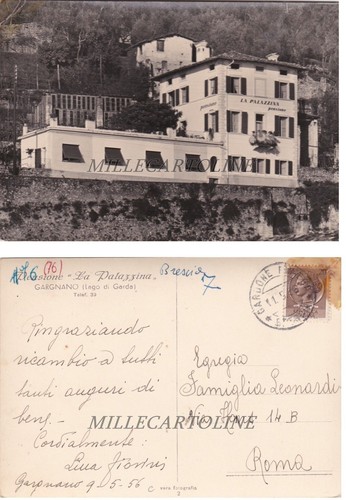 LA PALAZZINA
pensione
MILLECARTOLINE
N° 6 (76)
Pensione "La Palazzina"
GARGNANO (Lago di Garda)
Brescia
7
GARDONE
Ringraziando
ricambio a tutti
tanti auguri di
bene.
Cordialmente:
Gargnano 9-5-56
MILLECARTOLINE
Egregia
Famiglia Leonardi
Via 14 B
Roma
vera fotografia